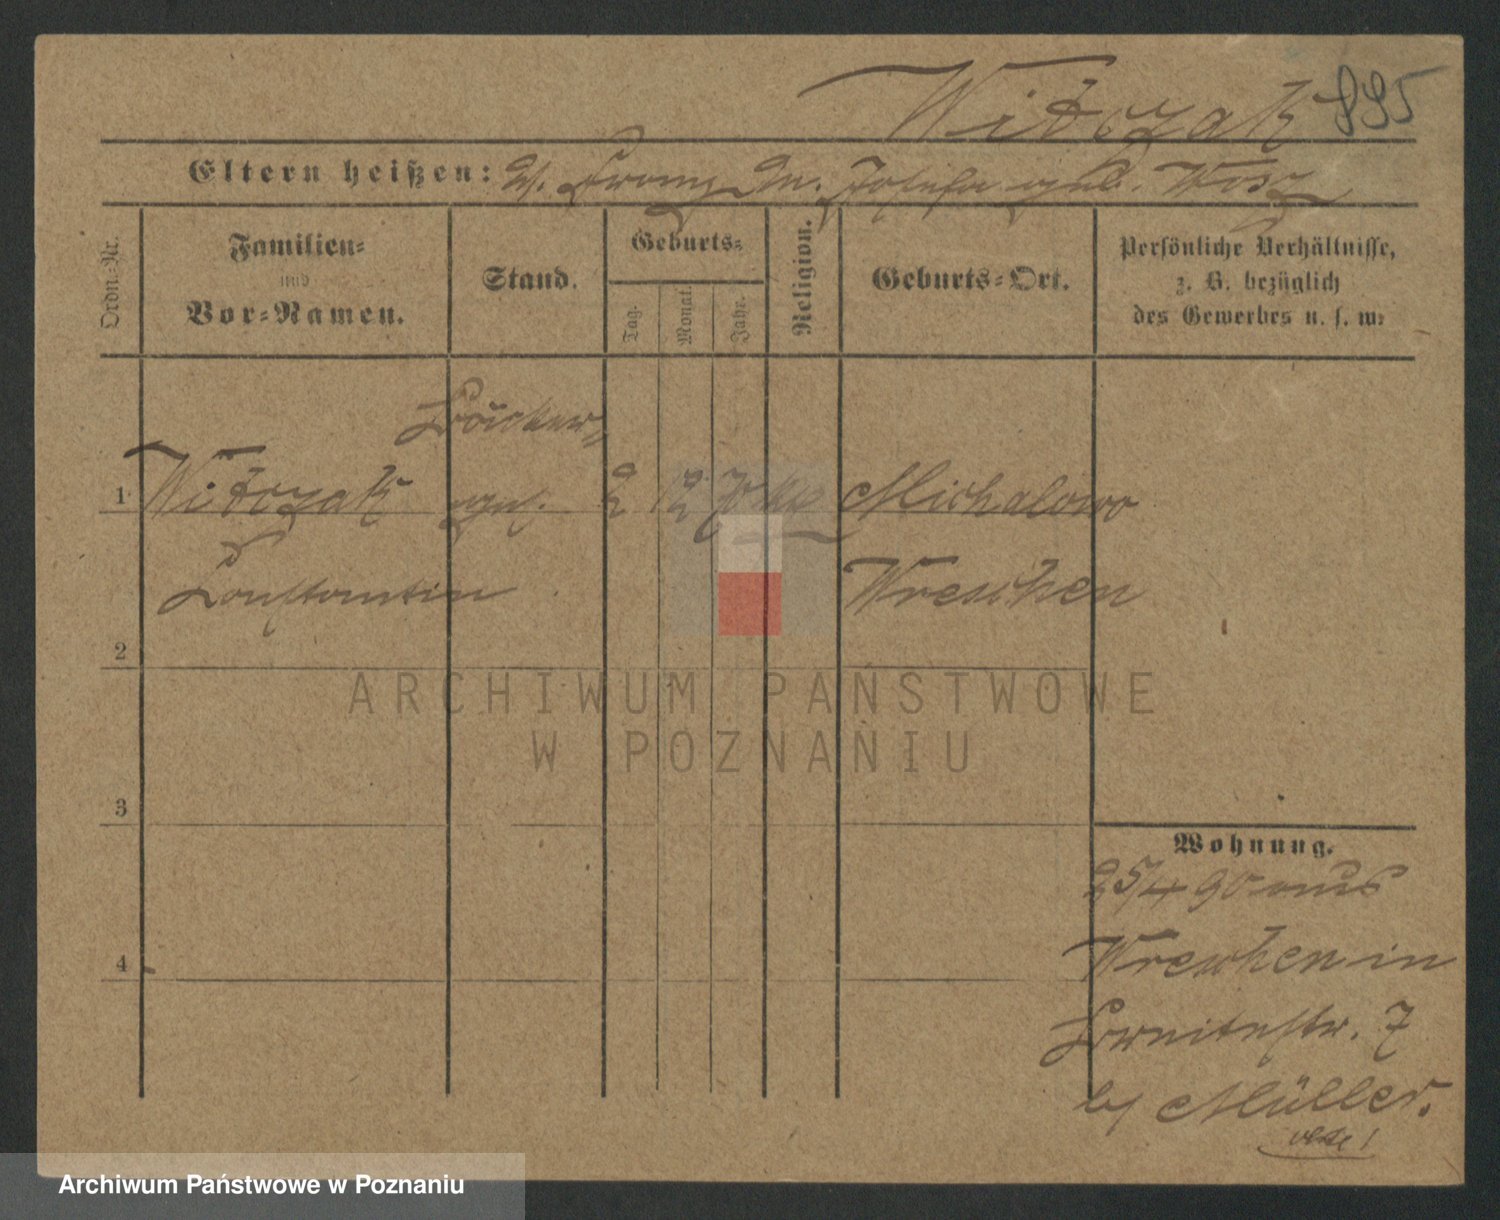 Witczak 895
Eltern heißen: V. Franz M. Josefa geb. Wosz
Ordn=Nr.
Familien=
und
Vor=Namen.
Stand.
Geburts=
Tag.
Monat.
Jahr.
Religion.
Geburts=Ort.
Persönliche Verhältnisse,
z. B. bezüglich
des Gewerbes u. s. w.
1 Witczak 2 12 70 Michalowo
Constantin Wreschen
2
3
4
Wohnung.
25/4 90 aus
Wreschen in
Breitestr. 7
bei Müller.
ARCHIWUM PAŃSTWOWE
W POZNANIU
Archiwum Państwowe w Poznaniu